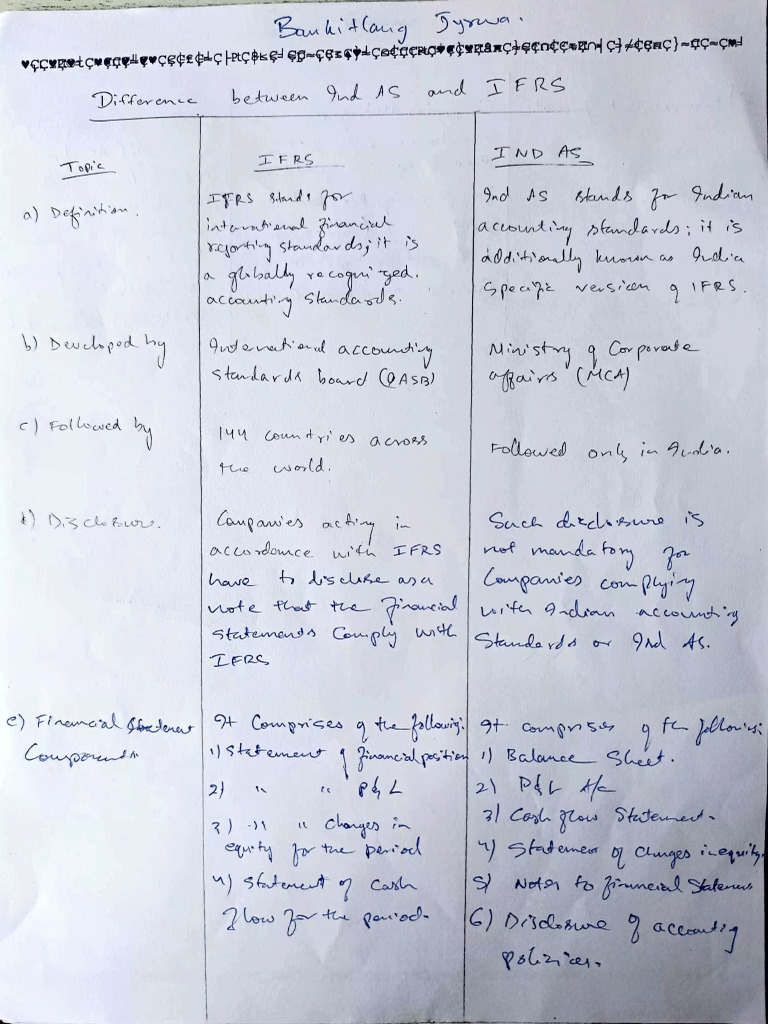 Bankitlang Jyrwa.
Difference between Ind AS and IFRS
Topic
IFRS
IND AS
a) Definition.
IFRS stands for
international financial
reporting standards; it is
a globally recognized.
accounting standards.
Ind AS stands for Indian
accounting standards; it is
additionally known as India
specific version of IFRS.
b) Developed by
International accounting
standards board (IASB)
Ministry of Corporate
affairs (MCA)
c) Followed by
144 countries across
the world.
Followed only in India.
d) Disclosure.
Companies acting in
accordance with IFRS
have to disclose as a
note that the financial
statements comply with
IFRS
Such disclosure is
not mandatory for
Companies complying
with Indian accounting
Standards or Ind AS.
e) Financial Statement
Components
It Comprises of the following:
1) Statement of financial position
2) " " P & L
3) -11 " Changes in
equity for the period
4) Statement of Cash
flow for the period.
It comprises of the following:
1) Balance Sheet.
2) P&L A/c
3) Cash flow Statement.
4) Statement of Changes in equity.
5) Notes to financial Statements
6) Disclosure of accounting
policies.